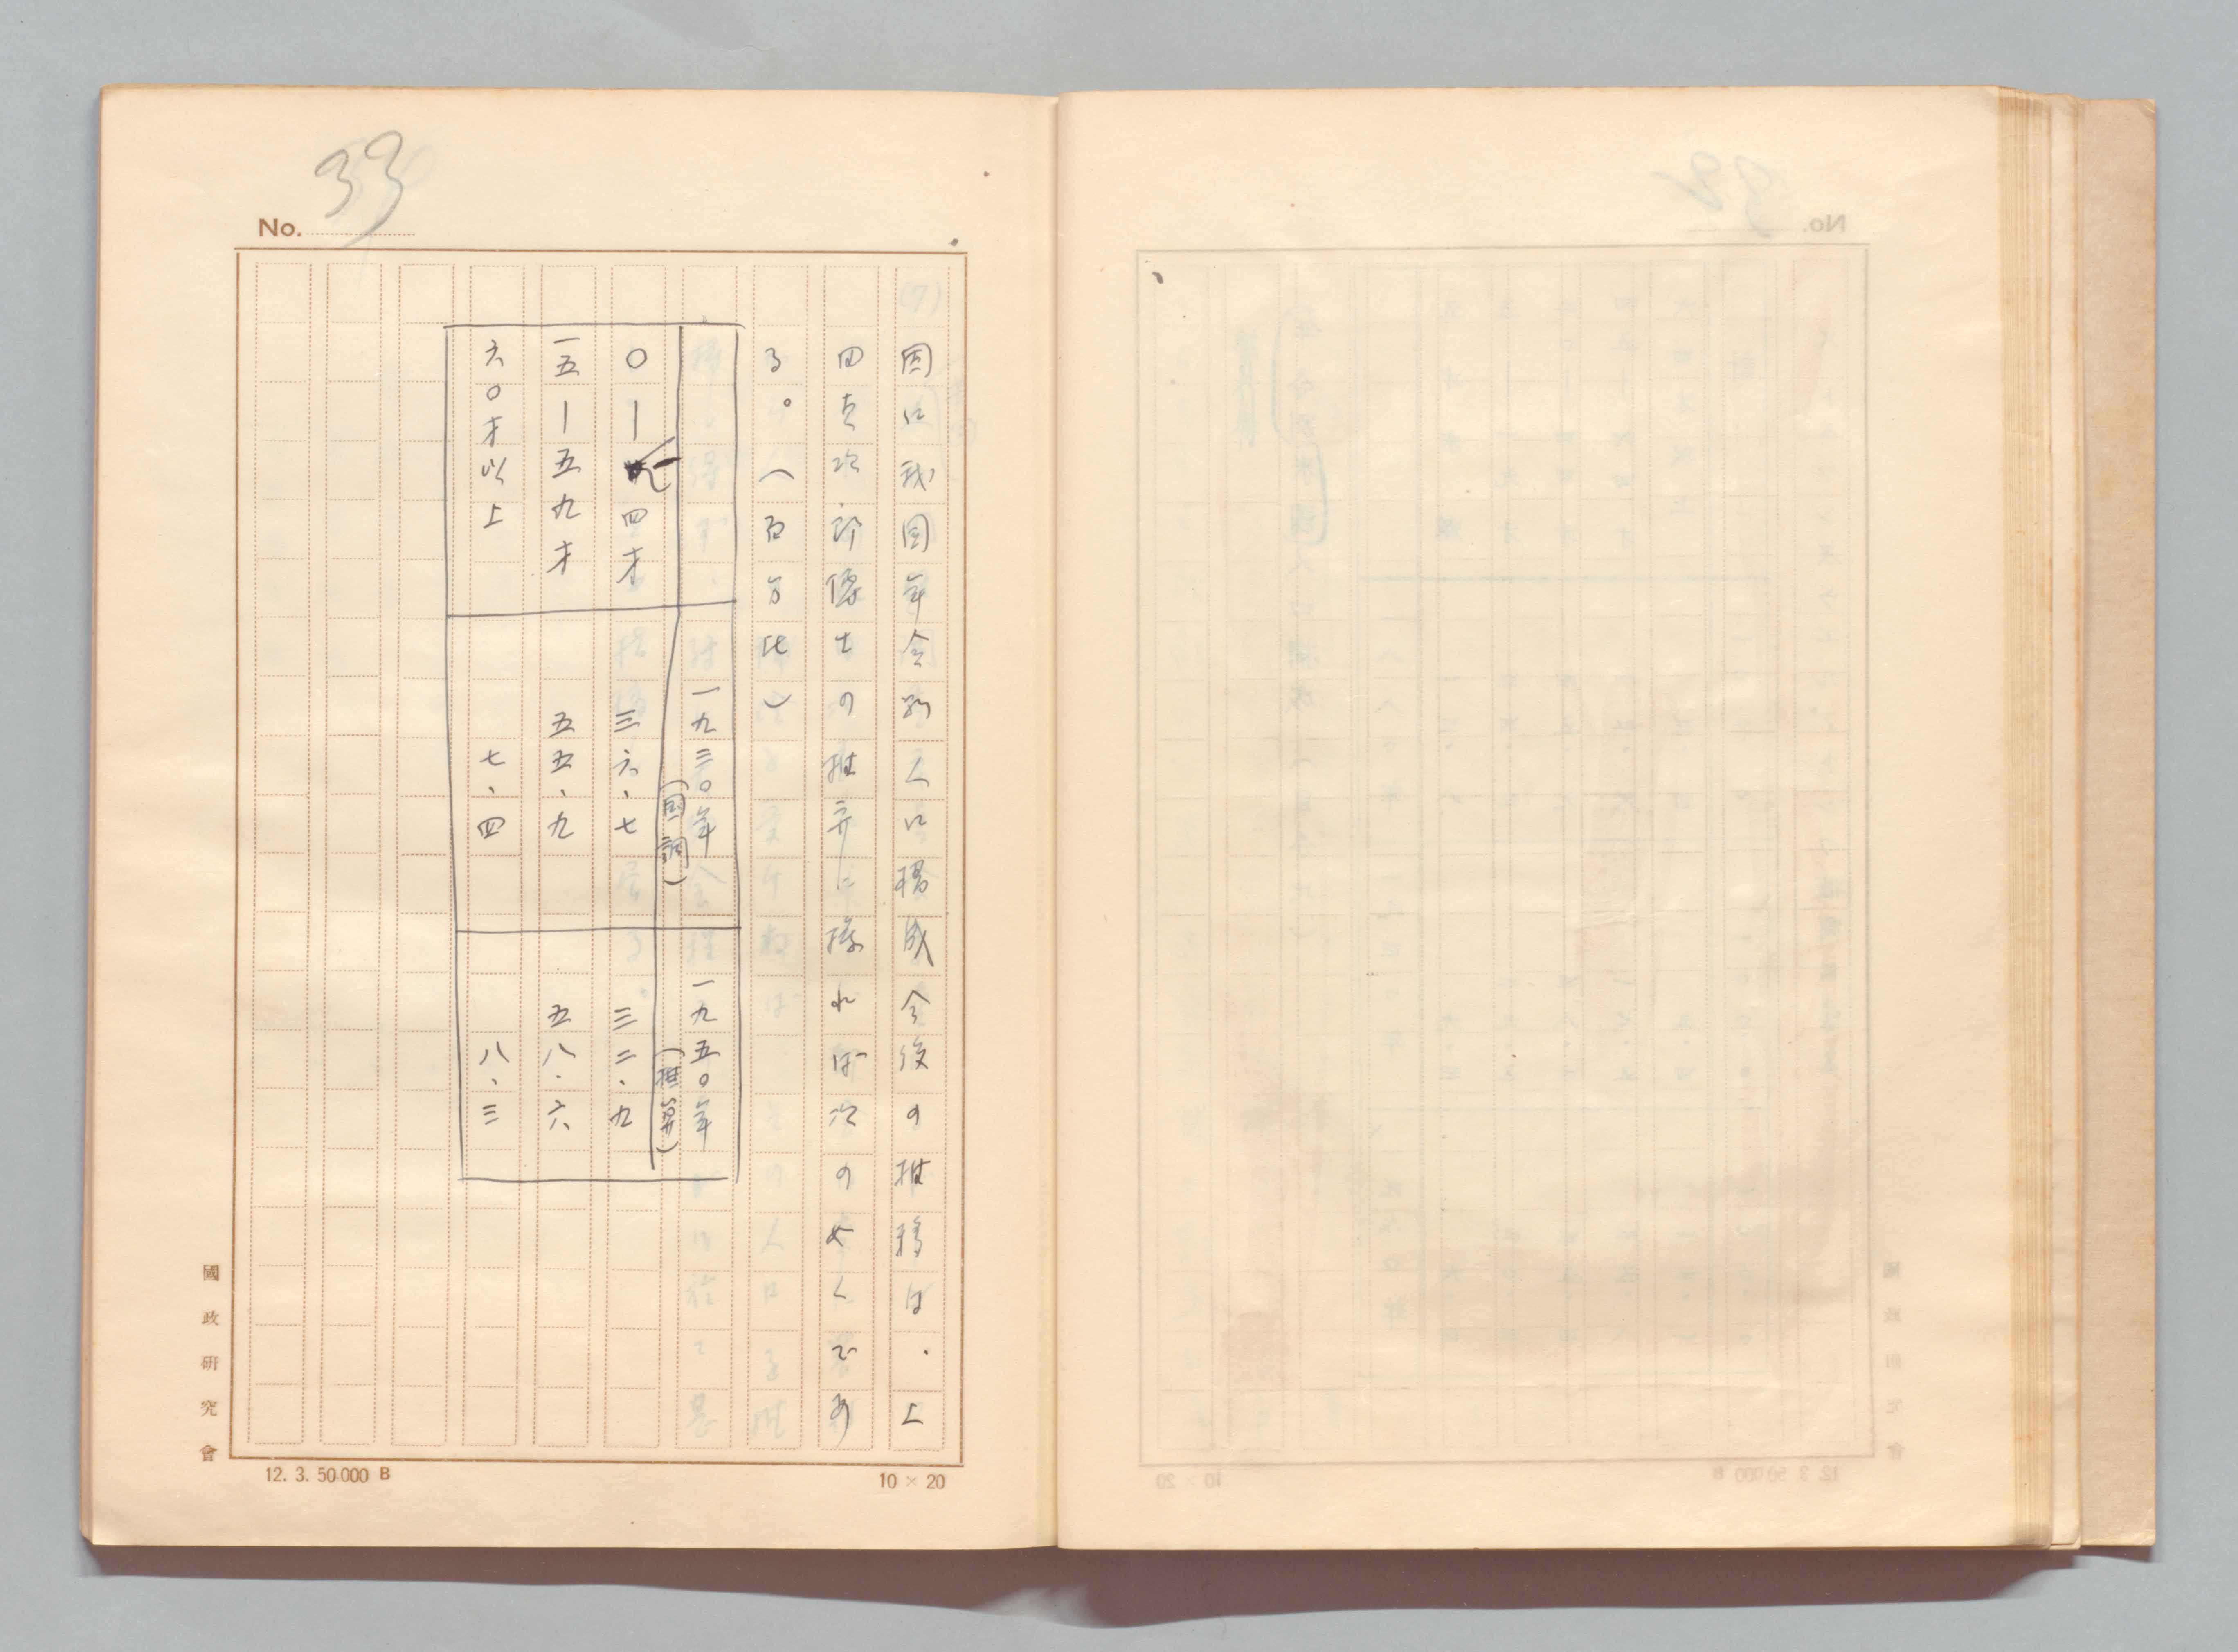 33
No.
因に我国年令別人口構成今後の推移は、上
田貞次郎博士の推算に據れば次の如くであ
る。（百分比）
一九三〇年（国調） 一九五〇年（推算）
〇—一四才 三六、七 三二、九
一五—五九才 五五、九 五八、六
六〇才以上 七、四 八、三
國政研究會
12. 3. 50.000 B
10 × 20